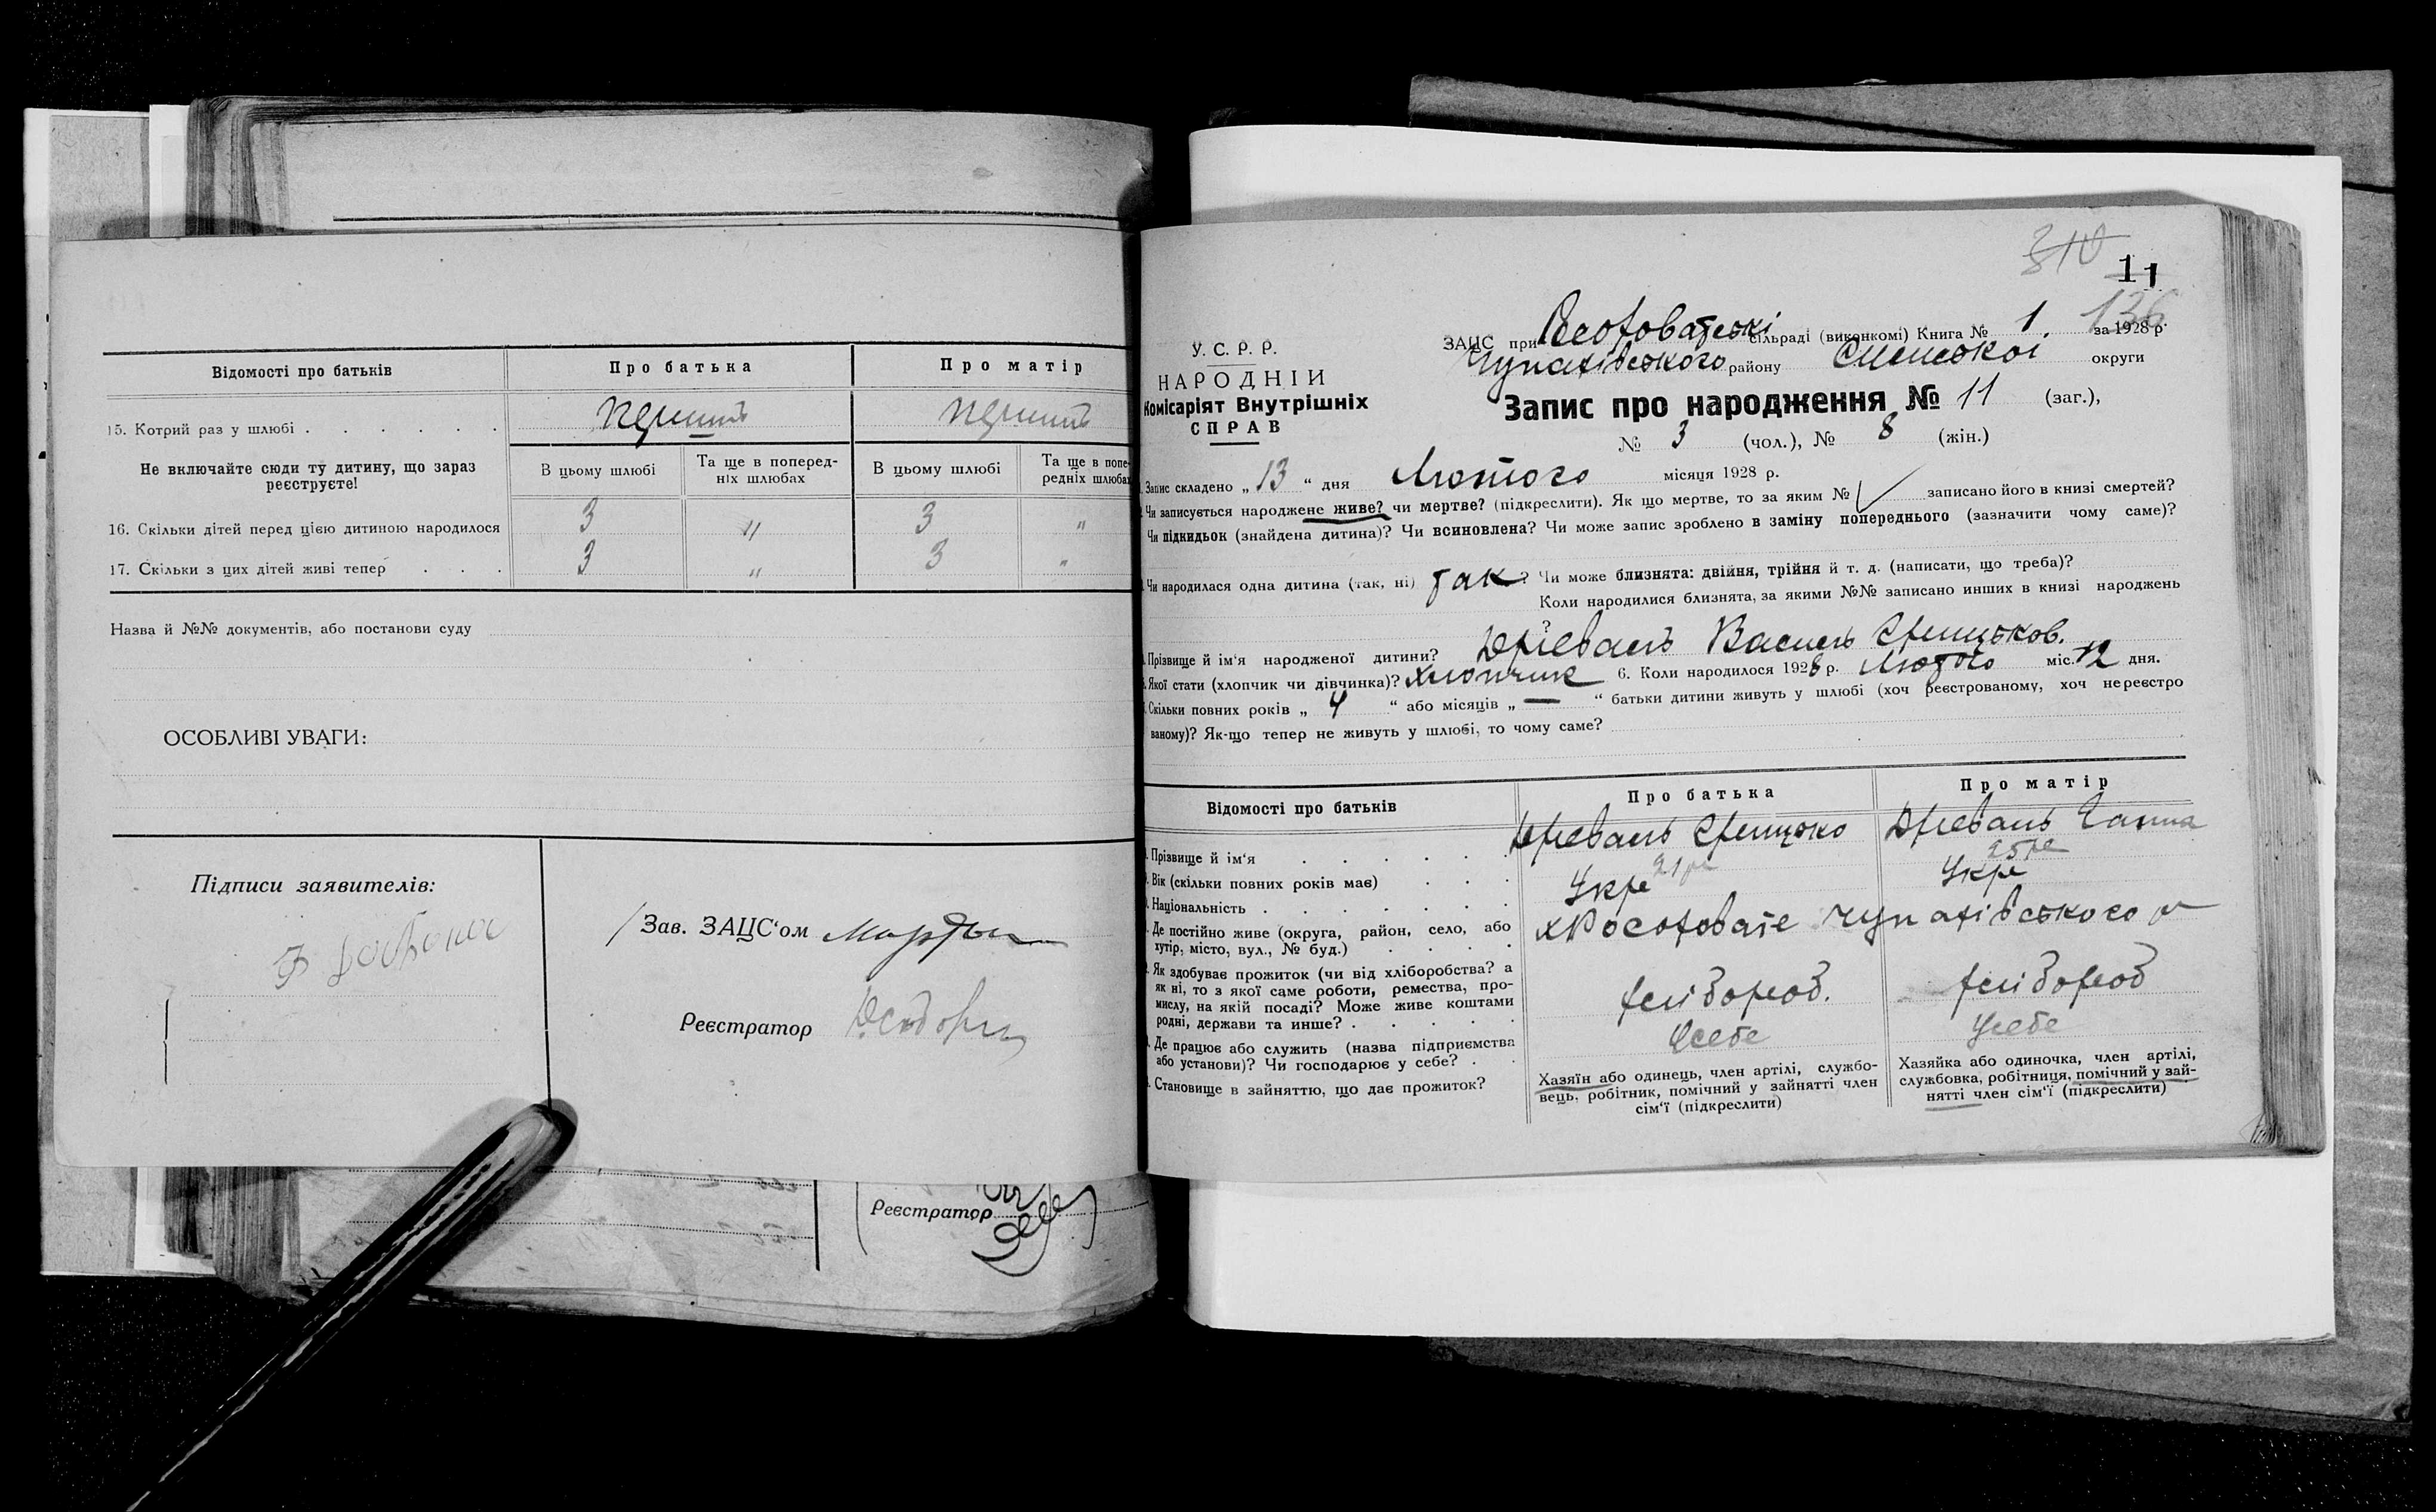 Відомості про батьків
Про батька
Про матір
15. Котрий раз у шлюбі . . . . . .
Не включайте сюди ту дитину, що зараз
реєструєте!
В цьому шлюбі
Та ще в поперед-
ніх шлюбах
В цьому шлюбі
Та ще в попе-
редніх шлюбах
16. Скільки дітей перед цією дитиною народилося 3 " 3 "
17. Скільки з цих дітей живі тепер . . . 3 " 3 "
Назва й №№ документів, або постанови суду
ОСОБЛИВІ УВАГИ:
Підписи заявителів:
Зав. ЗАЦС'ом
Реєстратор
Реєстратор
310
11
136
У. С. Р. Р.
НАРОДНІЙ
Комісаріят Внутрішніх
СПРАВ
ЗАЦС при сільраді (виконкомі) Книга № 1. за 1928 р.
Чупахівського району Сумської округи
Запис про народження № 11 (заг.),
№ 3 (чол.), № 8 (жін.)
Запис складено „ 13 “ дня Лютого місяця 1928 р.
Чи записується народжене живе? чи мертве? (підкреслити). Як що мертве, то за яким № записано його в книзі смертей?
Чи підкидьок (знайдена дитина)? Чи всиновлена? Чи може запис зроблено в заміну попереднього (зазначити чому саме)?
Чи народилася одна дитина (так, ні) так? Чи може близнята: двійня, трійня й т. д. (написати, що треба)?
Коли народилися близнята, за якими №№ записано инших в книзі народжень
?
Прізвище й ім'я народженої дитини? Древаль Василь Грицьков.
Якої стати (хлопчик чи дівчинка)? Хлопчик 6. Коли народилося 1928 р. Лютого міс. 12 дня.
Скільки повних років „ 4 “ або місяців „ — “ батьки дитини живуть у шлюбі (хоч реєстрованому, хоч нереєстро
ваному)? Як-що тепер не живуть у шлюбі, то чому саме?
Відомості про батьків
Про батька
Про матір
Прізвище й ім'я . . . . . . Древаль Грицько Древаль Ганна
Вік (скільки повних років має) . . . 25 рік
Національність . . . . . . . Укр Укр
Де постійно живе (округа, район, село, або
хутір, місто, вул., № буд.) . . . . Чупахівського р
Як здобуває прожиток (чи від хліборобства? а
як ні, то з якої саме роботи, ремества, про-
мислу, на якій посаді? Може живе коштами
родні, держави та инше? . . . . . хлібороб. хлібороб
Де працює або служить (назва підприємства
або установи)? Чи господарює у себе? . . У себе У себе
Становище в зайняттю, що дає прожиток?
Хазяїн або одинець, член артілі, службо-
вець, робітник, помічний у зайнятті член
сім'ї (підкреслити)
Хазяйка або одиночка, член артілі,
службовка, робітниця, помічний у зай-
нятті член сім'ї (підкреслити)